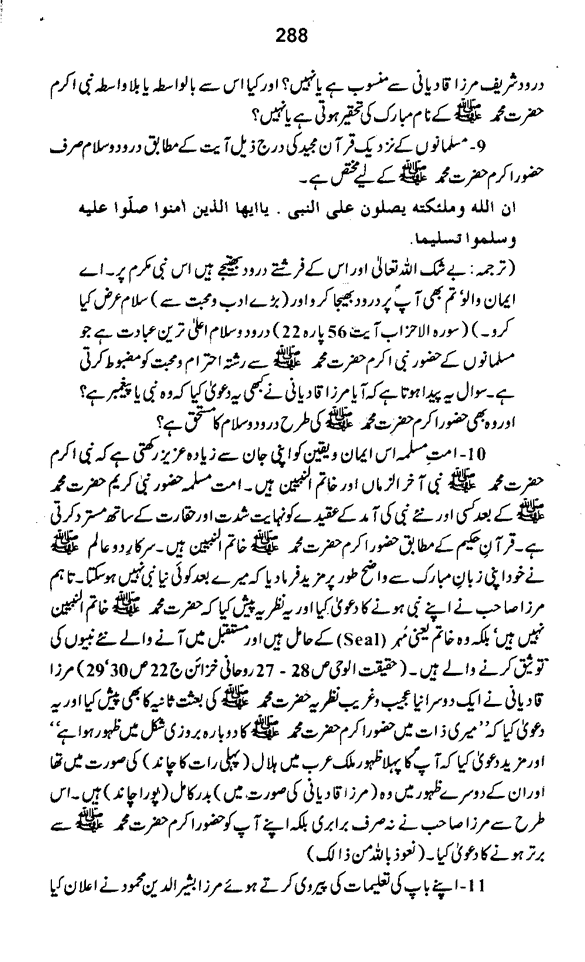 288
درود شریف مرزا قادیانی سے منسوب ہے یا نہیں؟ اور کیا اس سے بالواسطہ یا بلاواسطہ نبی اکرم
حضرت محمد ﷺ کے نام مبارک کی تحقیر ہوتی ہے یا نہیں؟
9- مسلمانوں کے نزدیک قرآن مجید کی درج ذیل آیت کے مطابق درود و سلام صرف
حضور اکرم حضرت محمد ﷺ کے لیے مختص ہے۔
ان الله وملئكته يصلون على النبى . ياايها الذين امنوا صلّوا عليه
وسلموا تسليما.
(ترجمہ: بے شک اللہ تعالیٰ اور اس کے فرشتے درود بھیجتے ہیں اس نبی مکرم پر۔ اے
ایمان والو! تم بھی آپؐ پر درود بھیجا کرو اور (بڑے ادب و محبت سے) سلام عرض کیا
کرو۔) (سورہ الاحزاب آیت 56 پارہ 22) درود و سلام اعلیٰ ترین عبادت ہے جو
مسلمانوں کے حضور نبی اکرم حضرت محمد ﷺ سے رشتہ احترام و محبت کو مضبوط کرتی
ہے۔ سوال یہ پیدا ہوتا ہے کہ آیا مرزا قادیانی نے کبھی یہ دعویٰ کیا کہ وہ نبی یا پیغمبر ہے؟
اور وہ بھی حضور اکرم حضرت محمد ﷺ کی طرح درود و سلام کا مستحق ہے؟
10- امت مسلمہ اس ایمان و یقین کو اپنی جان سے زیادہ عزیز رکھتی ہے کہ نبی اکرم
حضرت محمد ﷺ نبی آخر الزماں اور خاتم النبیین ہیں۔ امت مسلمہ حضور نبی کریم حضرت محمد
ﷺ کے بعد کسی اور نئے نبی کی آمد کے عقیدے کو نہایت شدت اور حقارت کے ساتھ مسترد کرتی
ہے۔ قرآن حکیم کے مطابق حضور اکرم حضرت محمد ﷺ خاتم النبیین ہیں۔ سرکار دو عالم ﷺ
نے خود اپنی زبان مبارک سے واضح طور پر مزید فرما دیا کہ میرے بعد کوئی نیا نبی نہیں ہو سکتا۔ تاہم
مرزا صاحب نے اپنے نبی ہونے کا دعویٰ کیا اور یہ نظریہ پیش کیا کہ حضرت محمد ﷺ خاتم النبیین
نہیں ہیں‘ بلکہ وہ خاتم یعنی مُہر (Seal) کے حامل ہیں اور مستقبل میں آنے والے نئے نبیوں کی
توثیق کرنے والے ہیں۔ (حقیقت الوحی ص 28 - 27 روحانی خزائن ج 22 ص 30‘29) مرزا
قادیانی نے ایک دوسرا نیا عجیب و غریب نظریہ حضرت محمد ﷺ کی بعثت ثانیہ کا بھی پیش کیا اور یہ
دعویٰ کیا کہ ’’میری ذات میں حضور اکرم حضرت محمد ﷺ کا دوبارہ بروزی شکل میں ظہور ہوا ہے‘‘
اور مزید دعویٰ کیا کہ آپؐ کا پہلا ظہور ملک عرب میں ہلال (پہلی رات کا چاند) کی صورت میں تھا
اور ان کے دوسرے ظہور میں وہ (مرزا قادیانی کی صورت میں) بدر کامل (پورا چاند) ہیں۔ اس
طرح سے مرزا صاحب نے نہ صرف برابری بلکہ اپنے آپ کو حضور اکرم حضرت محمد ﷺ سے
برتر ہونے کا دعویٰ کیا۔ (نعوذ باللہ من ذالک)
11- اپنے باپ کی تعلیمات کی پیروی کرتے ہوئے مرزا بشیر الدین محمود نے اعلان کیا